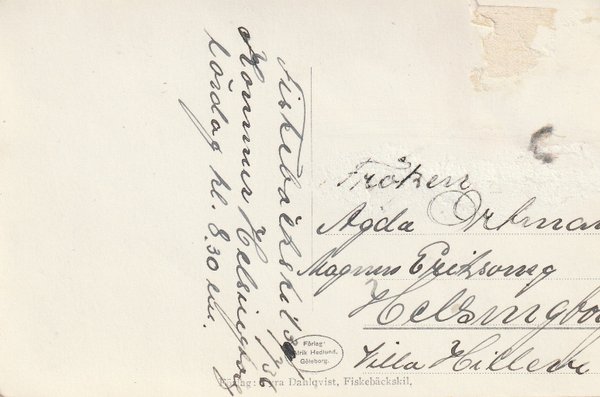 Fiskebäckskil 30/7 36
Kommer Helsingborg
Lördag kl. 8.30 em.
Fröken
Agda Ortman
Magnus Eriksonsg
Helsingbo
Villa
Förlag:
Hedlund,
Göteborg.
Förlag: Dahlqvist, Fiskebäckskil.